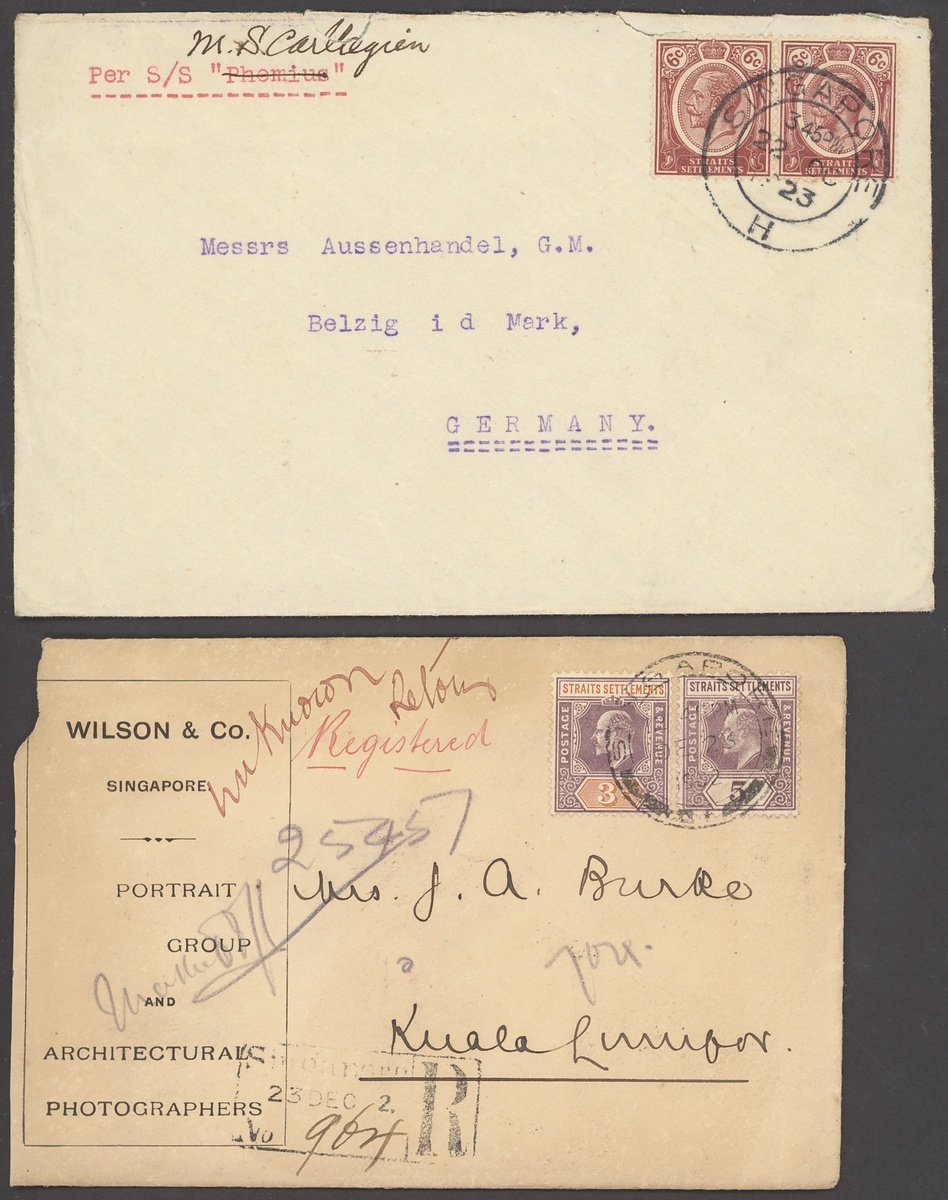 M.S. Carthagien
Per S/S "Phemius"
6c 6c
STRAITS SETTLEMENTS STRAITS SETTLEMENTS
SINGAPORE
3.45PM
22
23
H
Messrs Aussenhandel, G.M.
Belzig i d Mark,
GERMANY.
WILSON & Co.
SINGAPORE.
PORTRAIT
GROUP
AND
ARCHITECTURAL
PHOTOGRAPHERS
unknown
Retour
Registered
STRAITS SETTLEMENTS
POSTAGE & REVENUE
3
STRAITS SETTLEMENTS
POSTAGE & REVENUE
5
SINGAPORE
23
25457
Mrs. J. A. Burke
Kuala Lumpor.
23 DEC 2
R
964